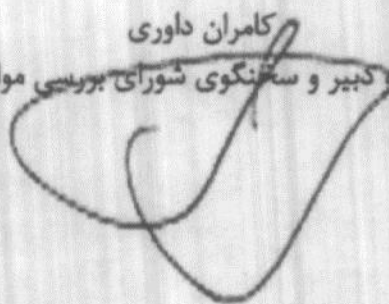 کامران داوری
دبیر و سخنگوی شورای بررسی